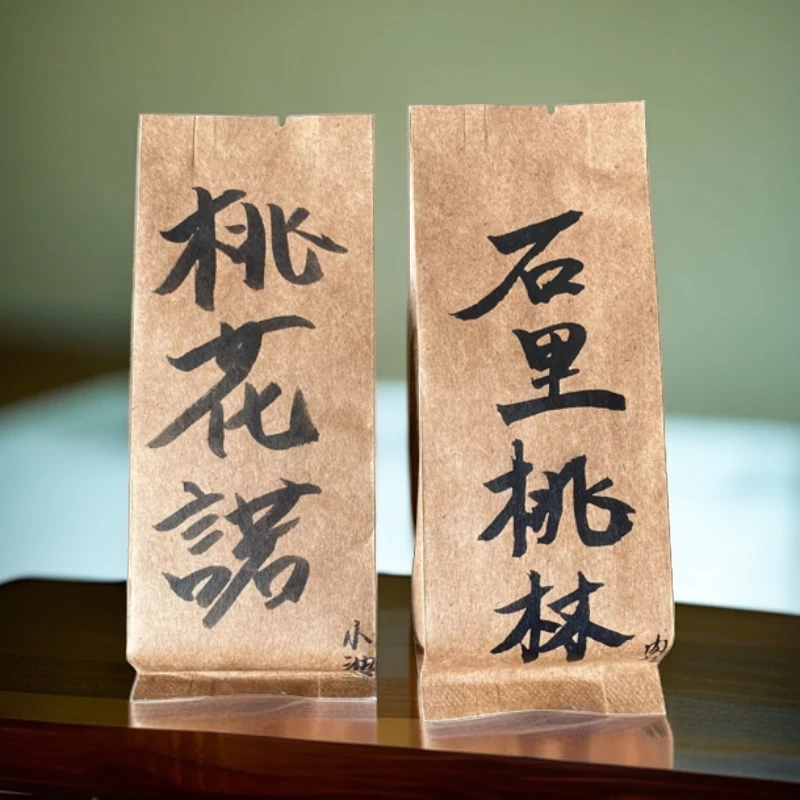 桃花諾
小
石里桃林